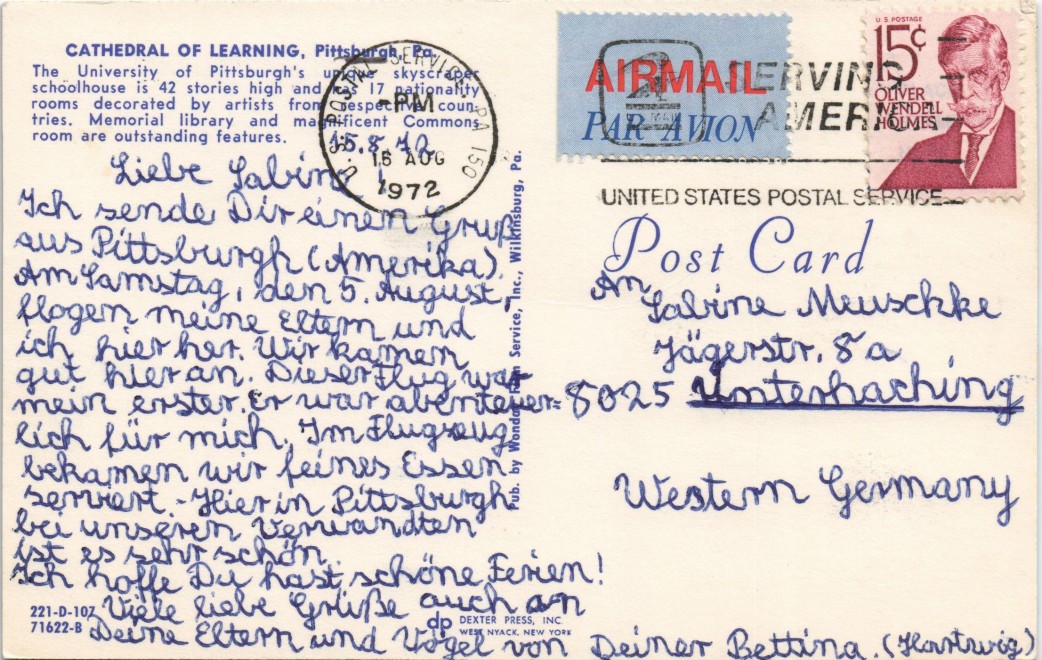 CATHEDRAL OF LEARNING, Pittsburgh, Pa.
The University of Pittsburgh's unique skyscraper
schoolhouse is 42 stories high and has 17 nationality
rooms decorated by artists from respective coun-
tries. Memorial library and magnificent Commons
room are outstanding features.
15.8.72
Liebe Sabine!
Ich sende Dir einen Gruß
aus Pittsburgh (Amerika).
Am Samstag, den 5. August,
flogen meine Eltern und
ich hier her. Wir kamen
gut hier an. Dieser Flug war
mein erster. Er war abenteuer=
lich für mich. Im Flugzeug
bekamen wir feines Essen
serviert. - Hier in Pittsburgh
bei unseren Verwandten
ist es sehr schön.
Ich hoffe Du hast schöne Ferien!
Viele liebe Grüße auch an
Deine Eltern und Vögel von Deiner Bettina. (Hartwig)
221-D-107
71622-B
dp DEXTER PRESS, INC.
WEST NYACK, NEW YORK
Pub. by Wonday Film Service, Inc., Wilkinsburg, Pa.
U.S. POSTAL SERVICE PA 150
PM
16 AUG
1972
AIRMAIL
PAR AVION
SERVING
AMERICA
UNITED STATES POSTAL SERVICE
U.S. POSTAGE
15¢
OLIVER
WENDELL
HOLMES
Post Card
An
Sabine Meuschke
Jägerstr. 8a
8025 Unterhaching
Western Germany